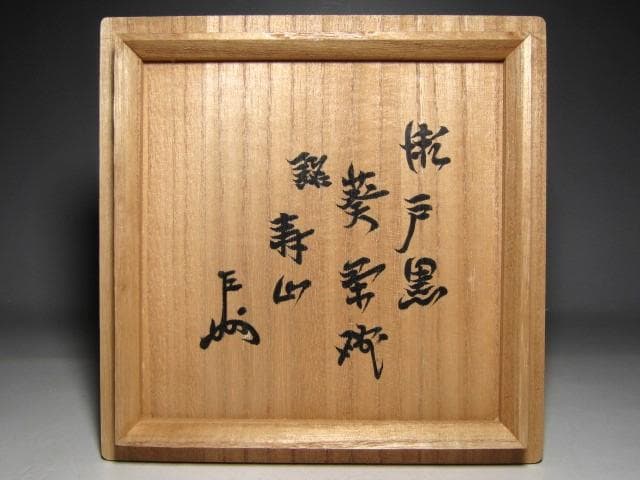 瀬戸黒
葵茶碗
銘
寿山